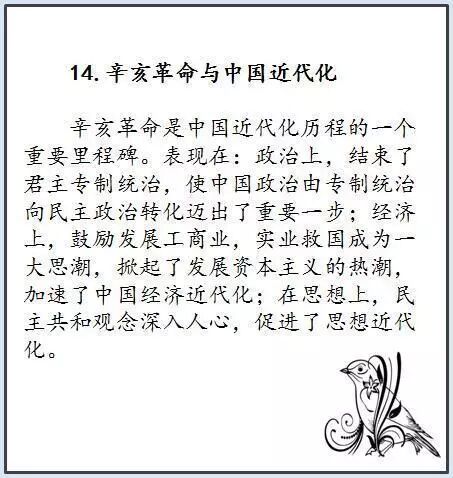 14.辛亥革命与中国近代化
辛亥革命是中国近代化历程的一个
重要里程碑。表现在：政治上，结束了
君主专制统治，使中国政治由专制统治
向民主政治转化迈出了重要一步；经济
上，鼓励发展工商业，实业救国成为一
大思潮，掀起了发展资本主义的热潮，
加速了中国经济近代化；在思想上，民
主共和观念深入人心，促进了思想近代
化。